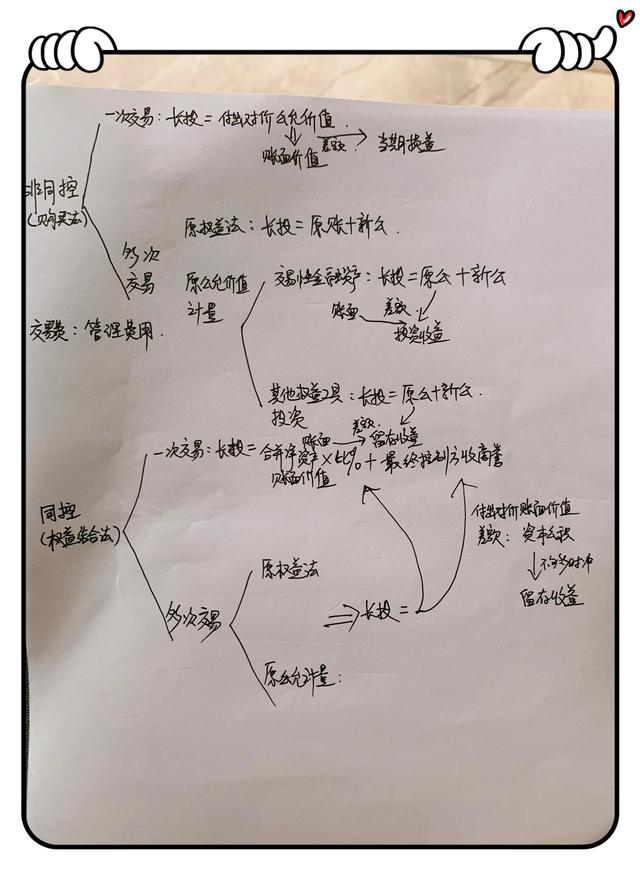 一次交易：长投=付出对价公允价值.
账面价值
差额
当期损益
非同控
(购买法)
原权益法：长投=原账+新公.
多次
交易
原公允价值
计量
交易性金融资产：长投=原公+新公
账面
差额.
投资收益
交易费：管理费用.
其他权益工具：长投=原公+新公.
投资
账面
差额.
留存收益
一次交易：长投=合并净资产×比%+最终控制方收商誉
账面价值
同控
(权益结合法)
付出对价账面价值
差额：资本公积
不够多时冲
留存收益
原权益法
多次交易
长投=
原公允计量：